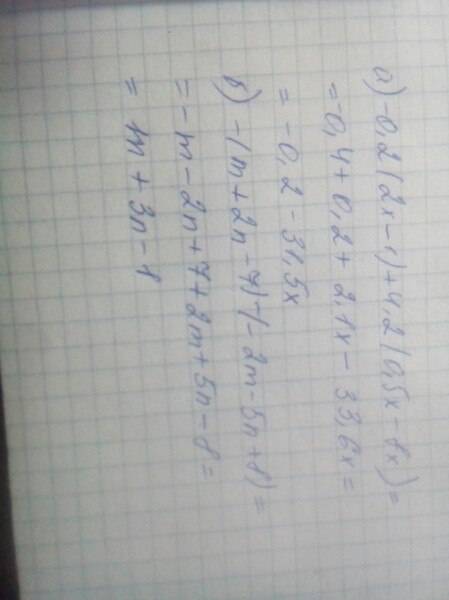 а) -0,2(2x-1)+4,2(0,5x-8x)=
= -0,4+0,2+2,1x-33,6x=
= -0,2-31,5x
в) -(m+2n-7)-(-2m-5n+8)=
= -m-2n+7+2m+5n-8=
= m+3n-1